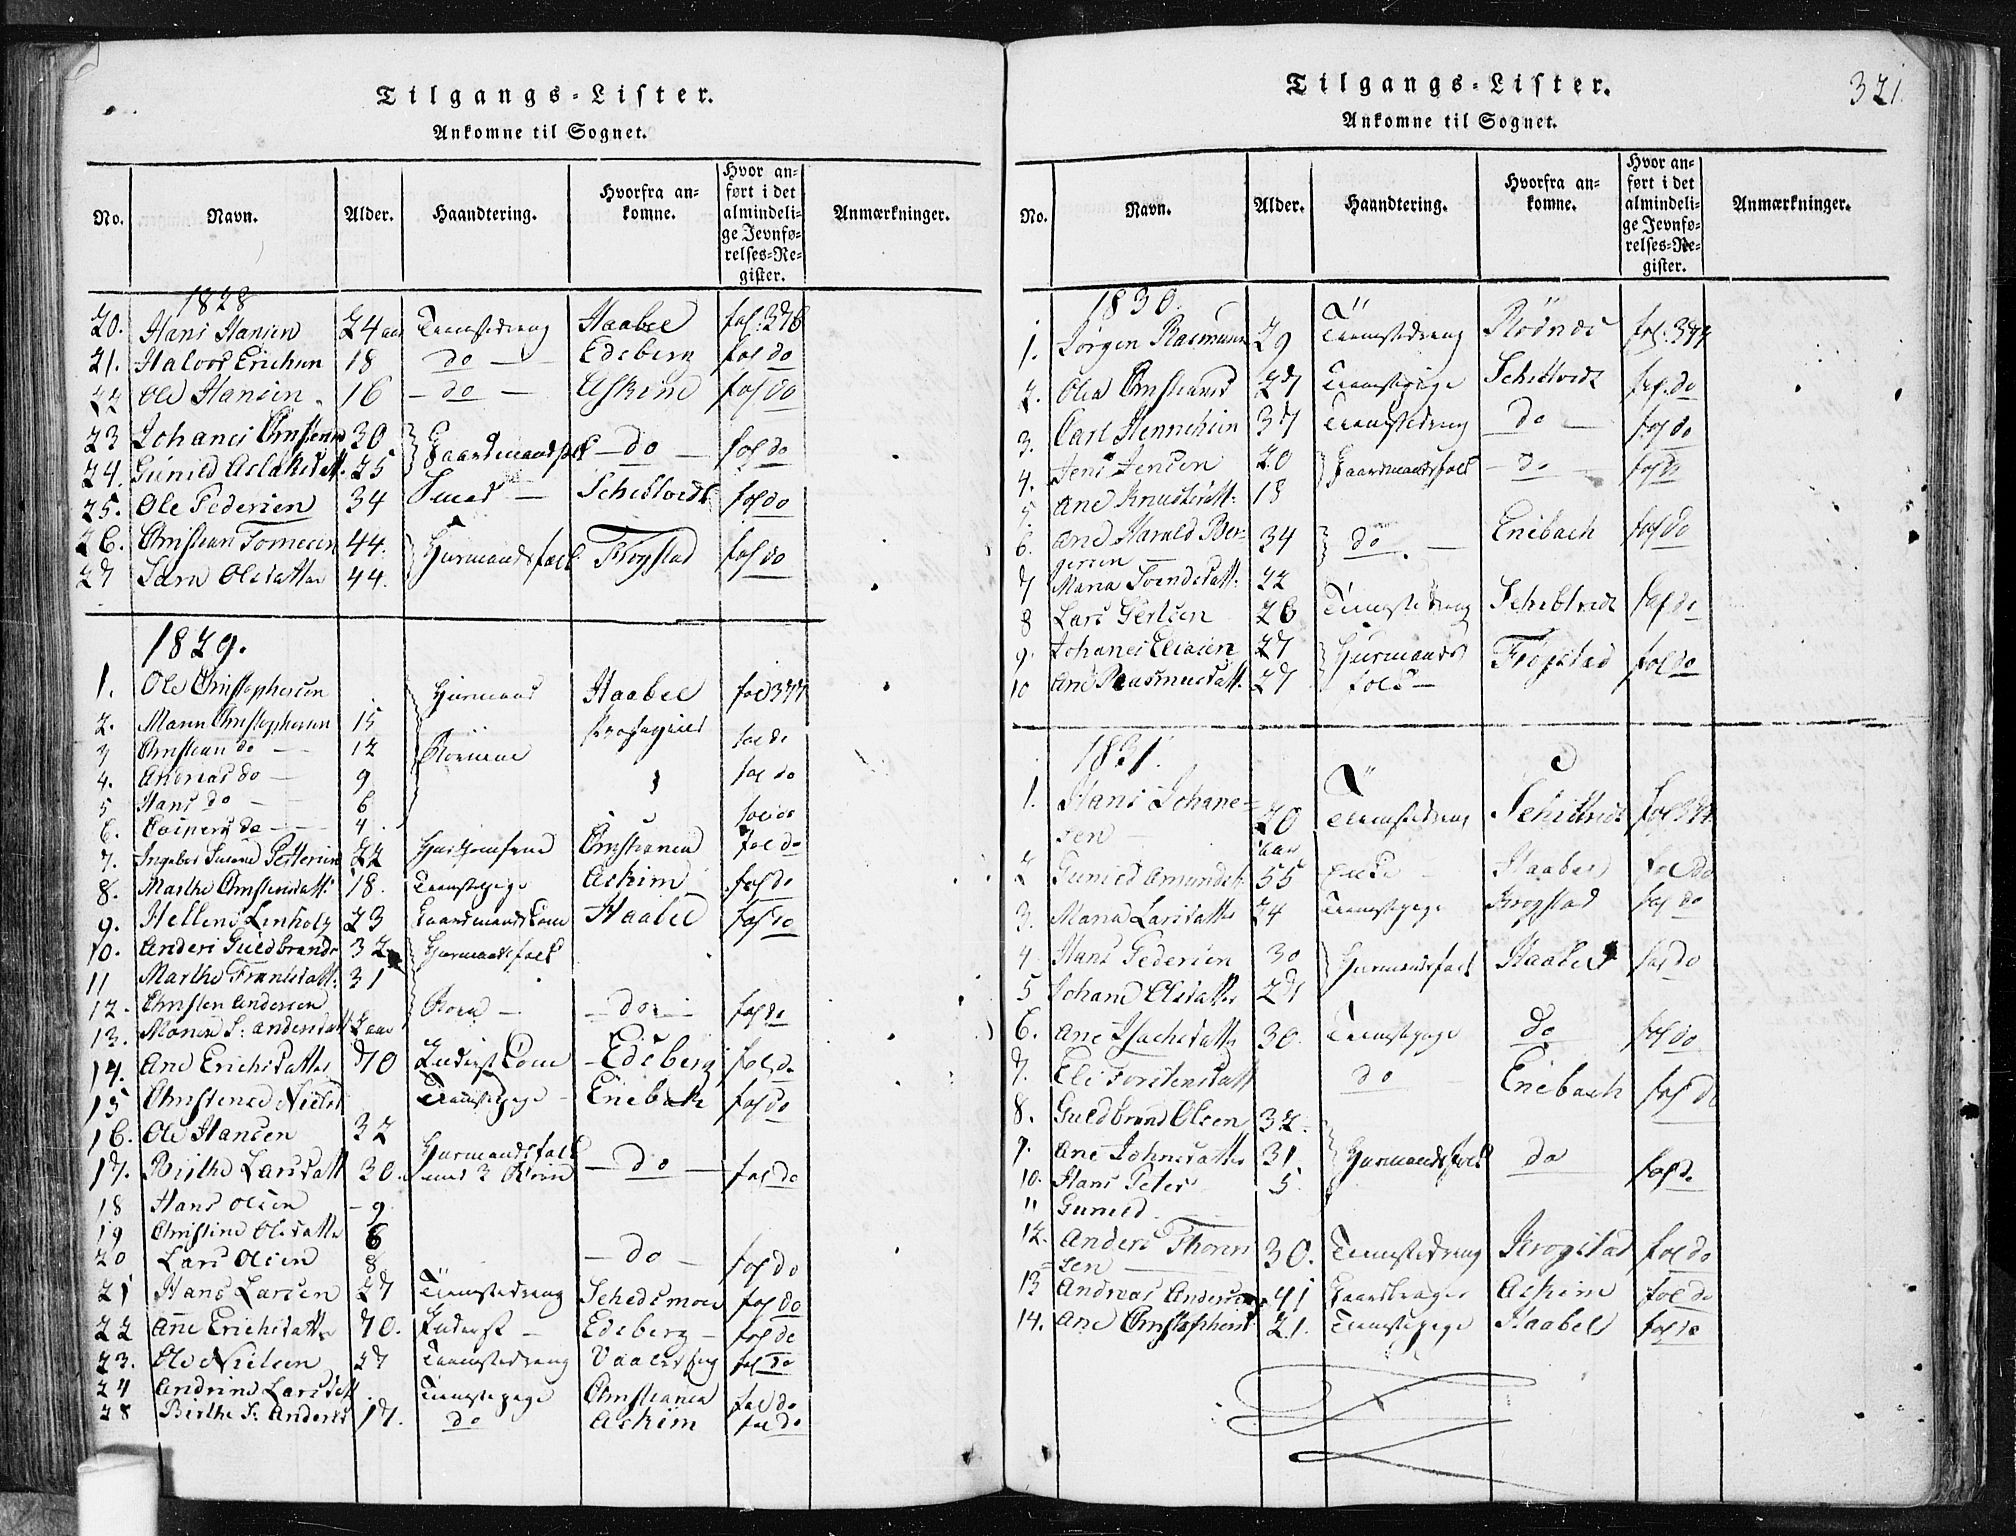 Tilgangs-Lister.
Ankomne til Sognet.
No. Navn. Alder. Haandtering. Hvorfra ankomne. Hvor anført i det almindelige Jevnførelses-Register. Anmærkninger.
1828
20. Hans Hansen 24 aar Tienistedreng Haabel fol: 376
21. Halvor Erichsen 18 do Edsberg fol do
22 Ole Hansen 16 do Askim fol do
23 Johanes Christens 30 Gaardmandsfolk do fol do
24. Gunild Aslaksdatt. 25
25. Ole Pedersen 34 Smed Schibtvedt fol do
26. Christian Tomesen 44. Huusmandsfolk Frogstad fol do
27 Sara Olsdatter 44.
1829.
1. Ole Christophersen Huusmand Haabel fol 377
2. Maren Christophersen 15 Krogstad fol do
3 Christian do 12 Børnene
4. Andreas do 9 fol do
5 Hans do 6
6. Casper do 4
7. Petersen 22 Christiania fol do
8. Marthe Christensdatt: 18. Tienistepige Askim fol do
9. Hellene Lenholz 23 Gaardmandskone Haabel fol do
10. Anders Guldbrands 32 Huusmandsfolk
11 Marthe Frantsdatt: 31
12. Christen Andersen Børn do fol do
13. S: Andersdatt 2 aar
14. Ane Erichsdatter 70 Inderst Kone Edsberg fol do
15 Christense Niels Tienistepige Enebak fol do
16. Ole Hansen 32 Huusmandsfolk
17. Birthe Larsdatt 30. med 3 Børn do fol do
18 Hans Olsen 9
19 Christine Olsdatter 6
20 Lars Olsen 8 do fol do
21 Hans Larsen 27 Tienistedreng Schedsmoe fol do
22 Ane Erichsdatter 70. Inderst Edsberg fol do
23. Ole Nielsen 27 Tienistedreng Vaaler fol do
24 Andrine Larsdatt Tienistepige Christiania fol do
28 Birthe S: Anders 17. do Askim fol do
Tilgangs-Lister. 321.
Ankomne til Sognet.
No. Navn. Alder. Haandtering. Hvorfra ankomne. Hvor anført i det almindelige Jevnførelses-Register. Anmærkninger.
1830.
1. Jørgen Rasmusen 29 Tienistedreng Rødnes fol. 377
2. Olea Christiansd 27 Tienistepige Schibtvedt fol. do
3. Carl Hennehsen 37 Tienistedreng do fol do
4. Jens Jensen 20 Gaardmandsfolk do fol do
5 Ane Knudsdatt: 18
6. Ane Harald Ber- 34 do Enebach fol do
gersen
7 Maria Svendsdatt. 22
8 Lars Gertsen 26 Tienistedreng Schibtvedt fol do
9. Johanes Eliasen 27 Huusmands Frogstad fol do
10 Ane Rasmusdatt. 27 folk
1831.
1. Hans Johane- 20 Tienistedreng Schibtvedt fol 377.
sen aar
2 Gunild Amundsd. 55 Enke Haabel fol do
3. Maria Larsdatter 24 Tienistepige Krogstad fol do
4 Hans Pedersen 30 Huusmandsfolk Haabel fol do
5 Johane Olsdatter 27
6. Ane Isachsdatter 30. Tienistepige do fol do
7. Eli Torstensdatt do Enebach fol do
8. Guldbrand Olsen 32.
9. Ane Johnsdatter 31. Huusmandsfolk do fol do
10. Hans Peter 5
11 Gunild
12. Anders Thoren 30. Tienistedreng Krogstad fol do
sen
13 Andreas Andersen 41 Gaardbruger Askim fol do
14. Ane Christophersd 21. Tienistepige Haabel fol do